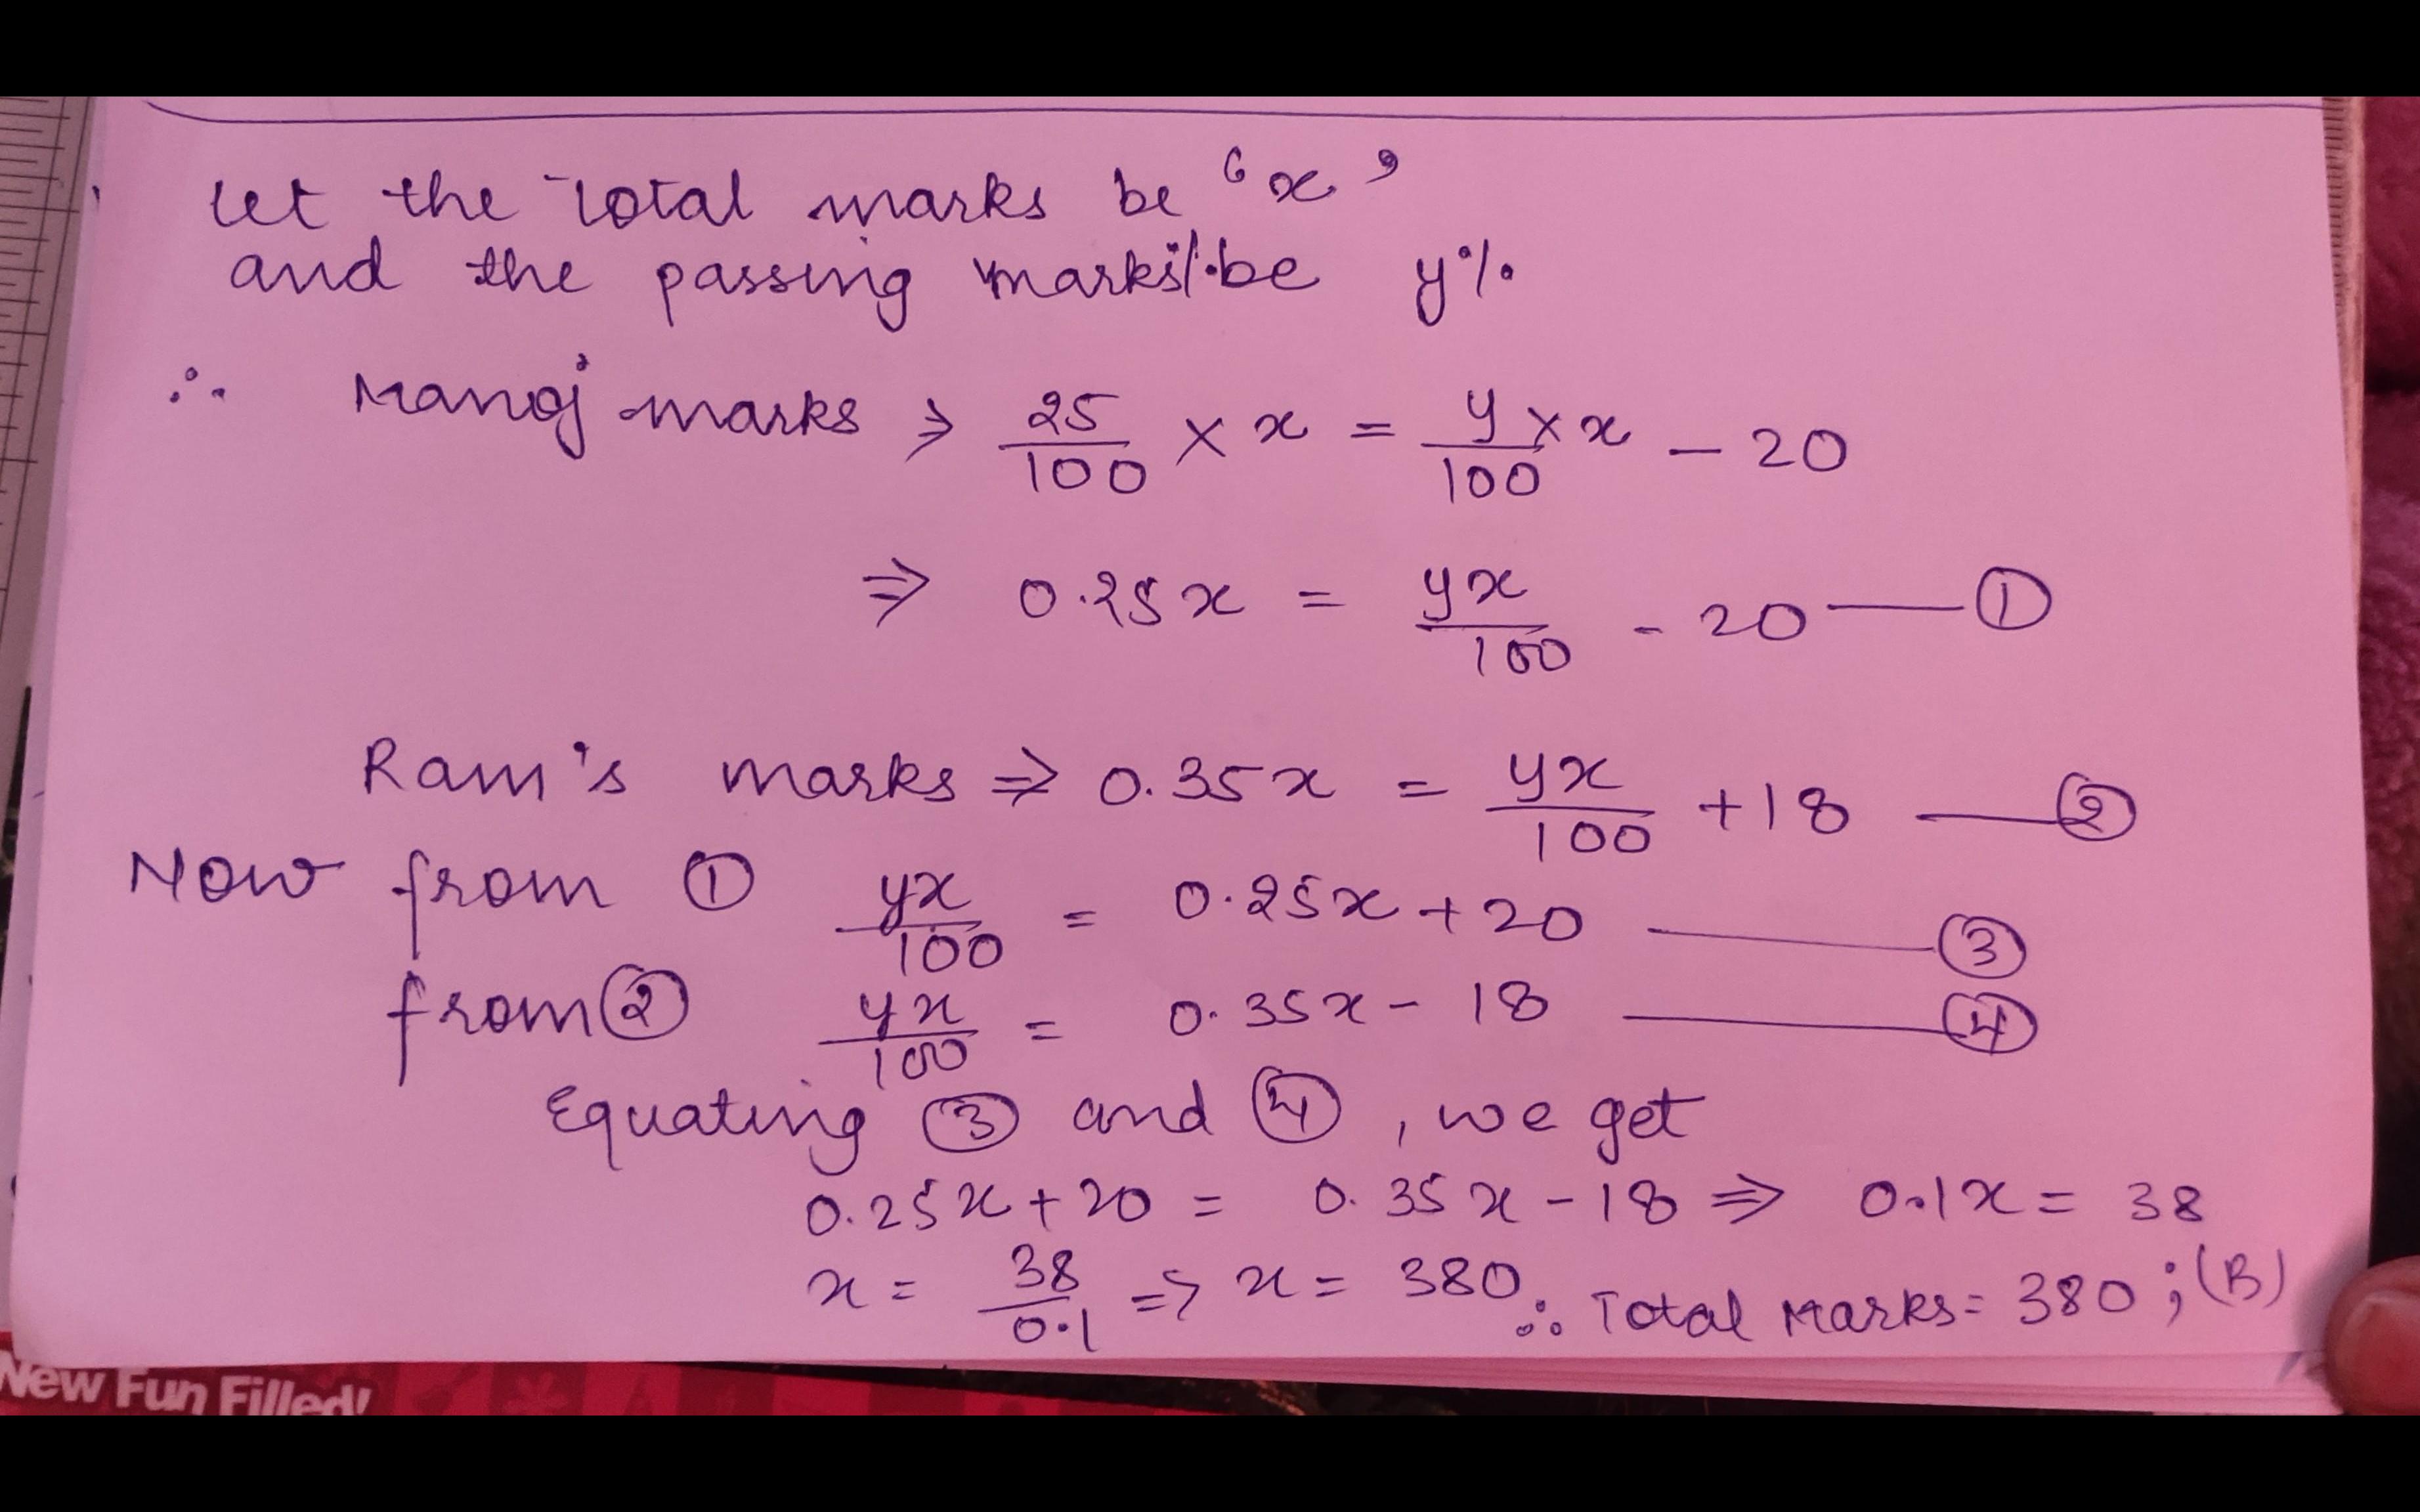 Let the Total marks be 'x'
and the passing marks% be y%
∴ Manoj marks ⇒ 25/100 × x = y/100 × x - 20
⇒ 0.25x = yx/100 - 20 — ①
Ram's marks ⇒ 0.35x = yx/100 + 18 — ②
Now from ① yx/100 = 0.25x + 20 — ③
from ② yx/100 = 0.35x - 18 — ④
Equating ③ and ④, we get
0.25x + 20 = 0.35x - 18 ⇒ 0.1x = 38
x = 38/0.1 ⇒ x = 380 ∴ Total Marks = 380 ; (B)
New Fun Filled!